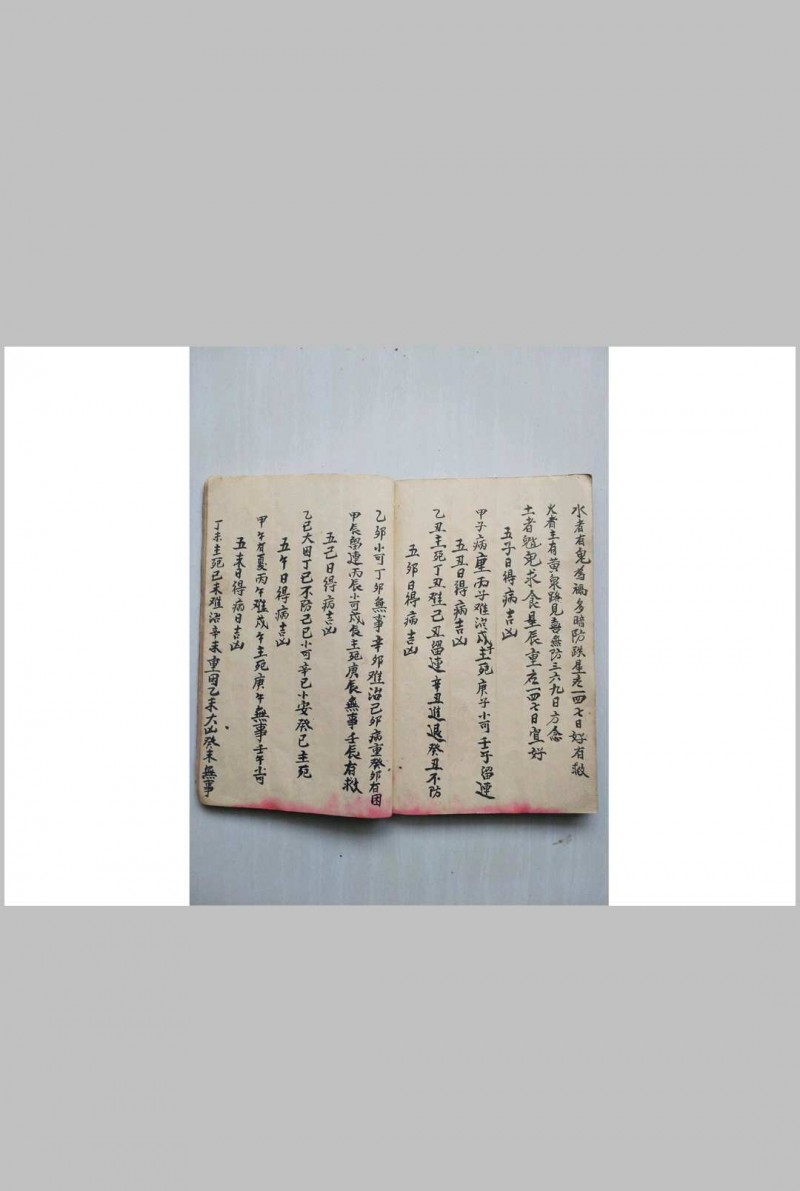 水者有鬼為禍多暗防跌星在一四七日好有救
火者主有黃泉路見喜無防三六九日方念
土者魁鬼求食星辰重在一四七日宜好
五子日得病吉凶
甲子病重丙子难治戊子主死庚子小可壬子留連
五丑日得病吉凶
乙丑主死丁丑难己丑留連辛丑進退癸丑不防
五卯日得病吉凶
乙卯小可丁卯無事辛卯难治己卯病重癸卯有困
甲辰留連丙辰小可戊辰主死庚辰無事壬辰有救
五己日得病吉凶
乙巳大困丁巳不防己巳小可辛巳小安癸巳主死
五午日得病吉凶
甲午有夏丙午难戊午主死庚午無事壬午小可
五未日得病日吉凶
丁未主死己未难治辛未重困乙未大凶癸未無事